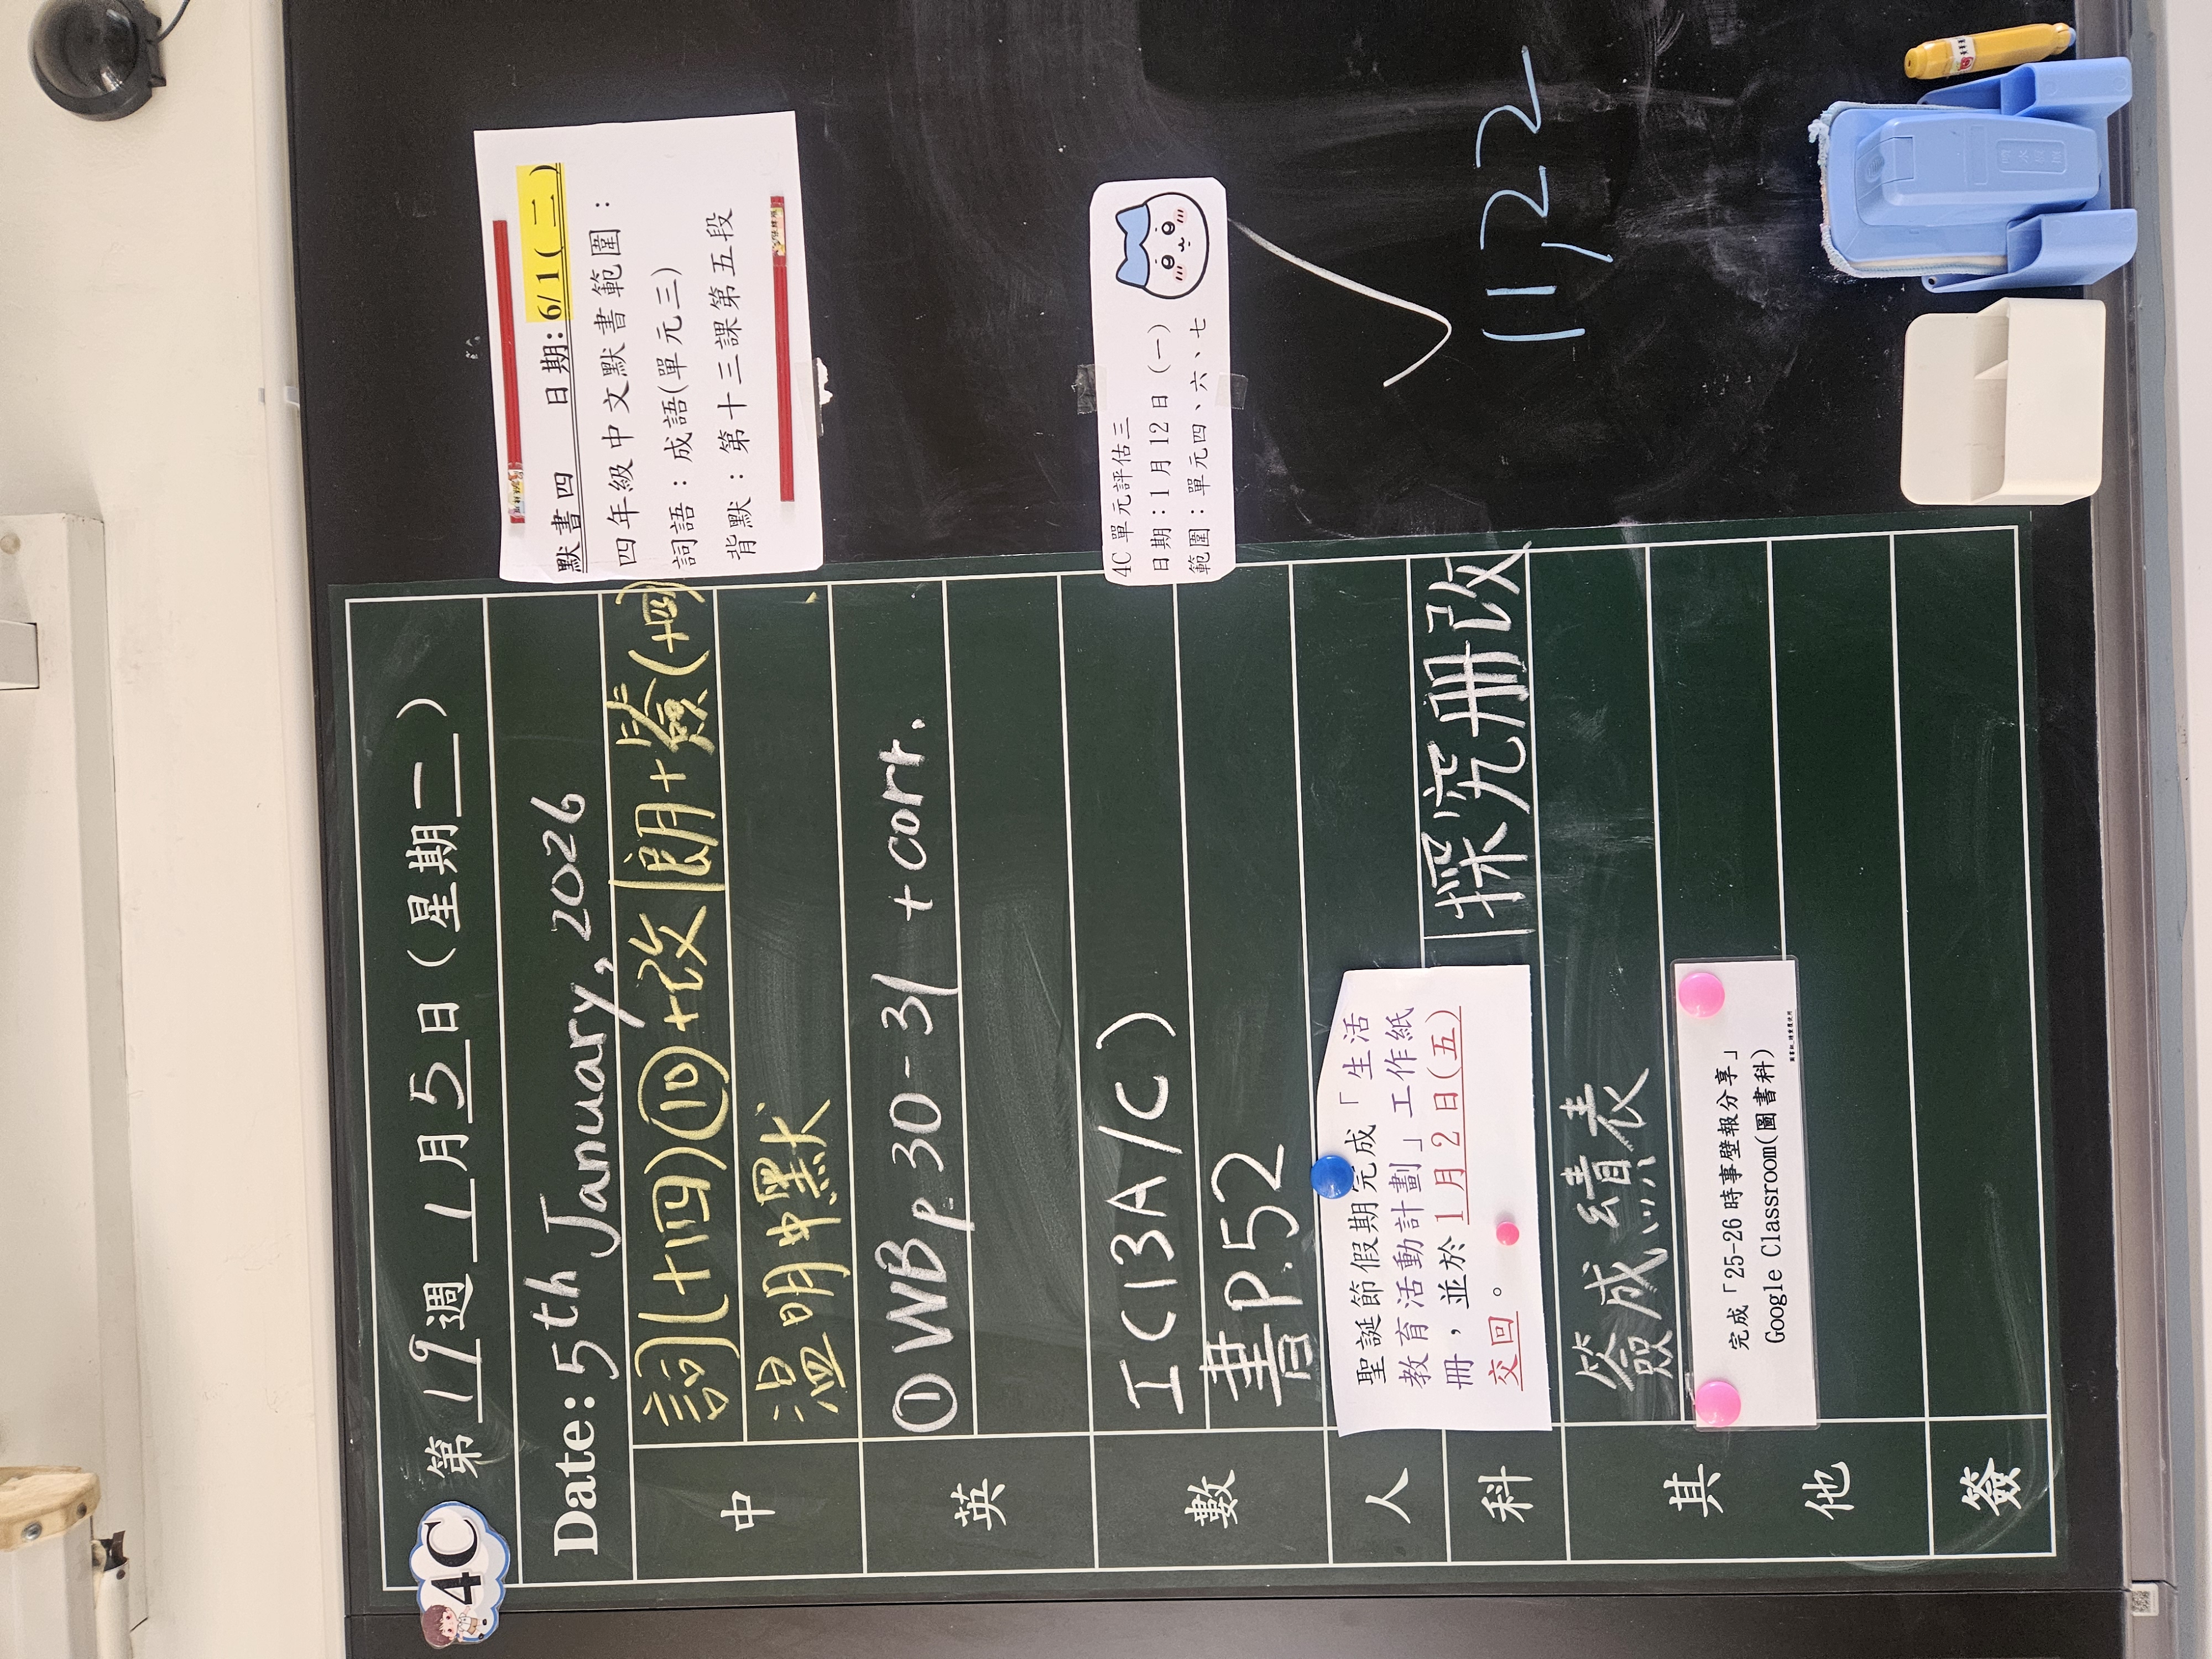 4C
第19週 1月5日(星期一)
Date: 5th January, 2026
中
詞(十四)⑩+改 朗+簽(十四)
溫明中默
英
①WB p.30-31 + corr.
數
工(13A/C)
書P.52
人
聖誕節假期完成「生活
教育活動計劃」工作紙
冊,並於1月2日(五)
交回。
科
探究冊改
其他
簽成績表
完成「25-26 時事壁報分享」
Google Classroom(圖書科)
簽
默書四 日期:6/1(二)
四年級中文默書範圍:
詞語:成語(單元三)
背默:第十三課第五段
4C 單元評估三
日期:1月12日 (一)
範圍:單元四、六、七
11,22